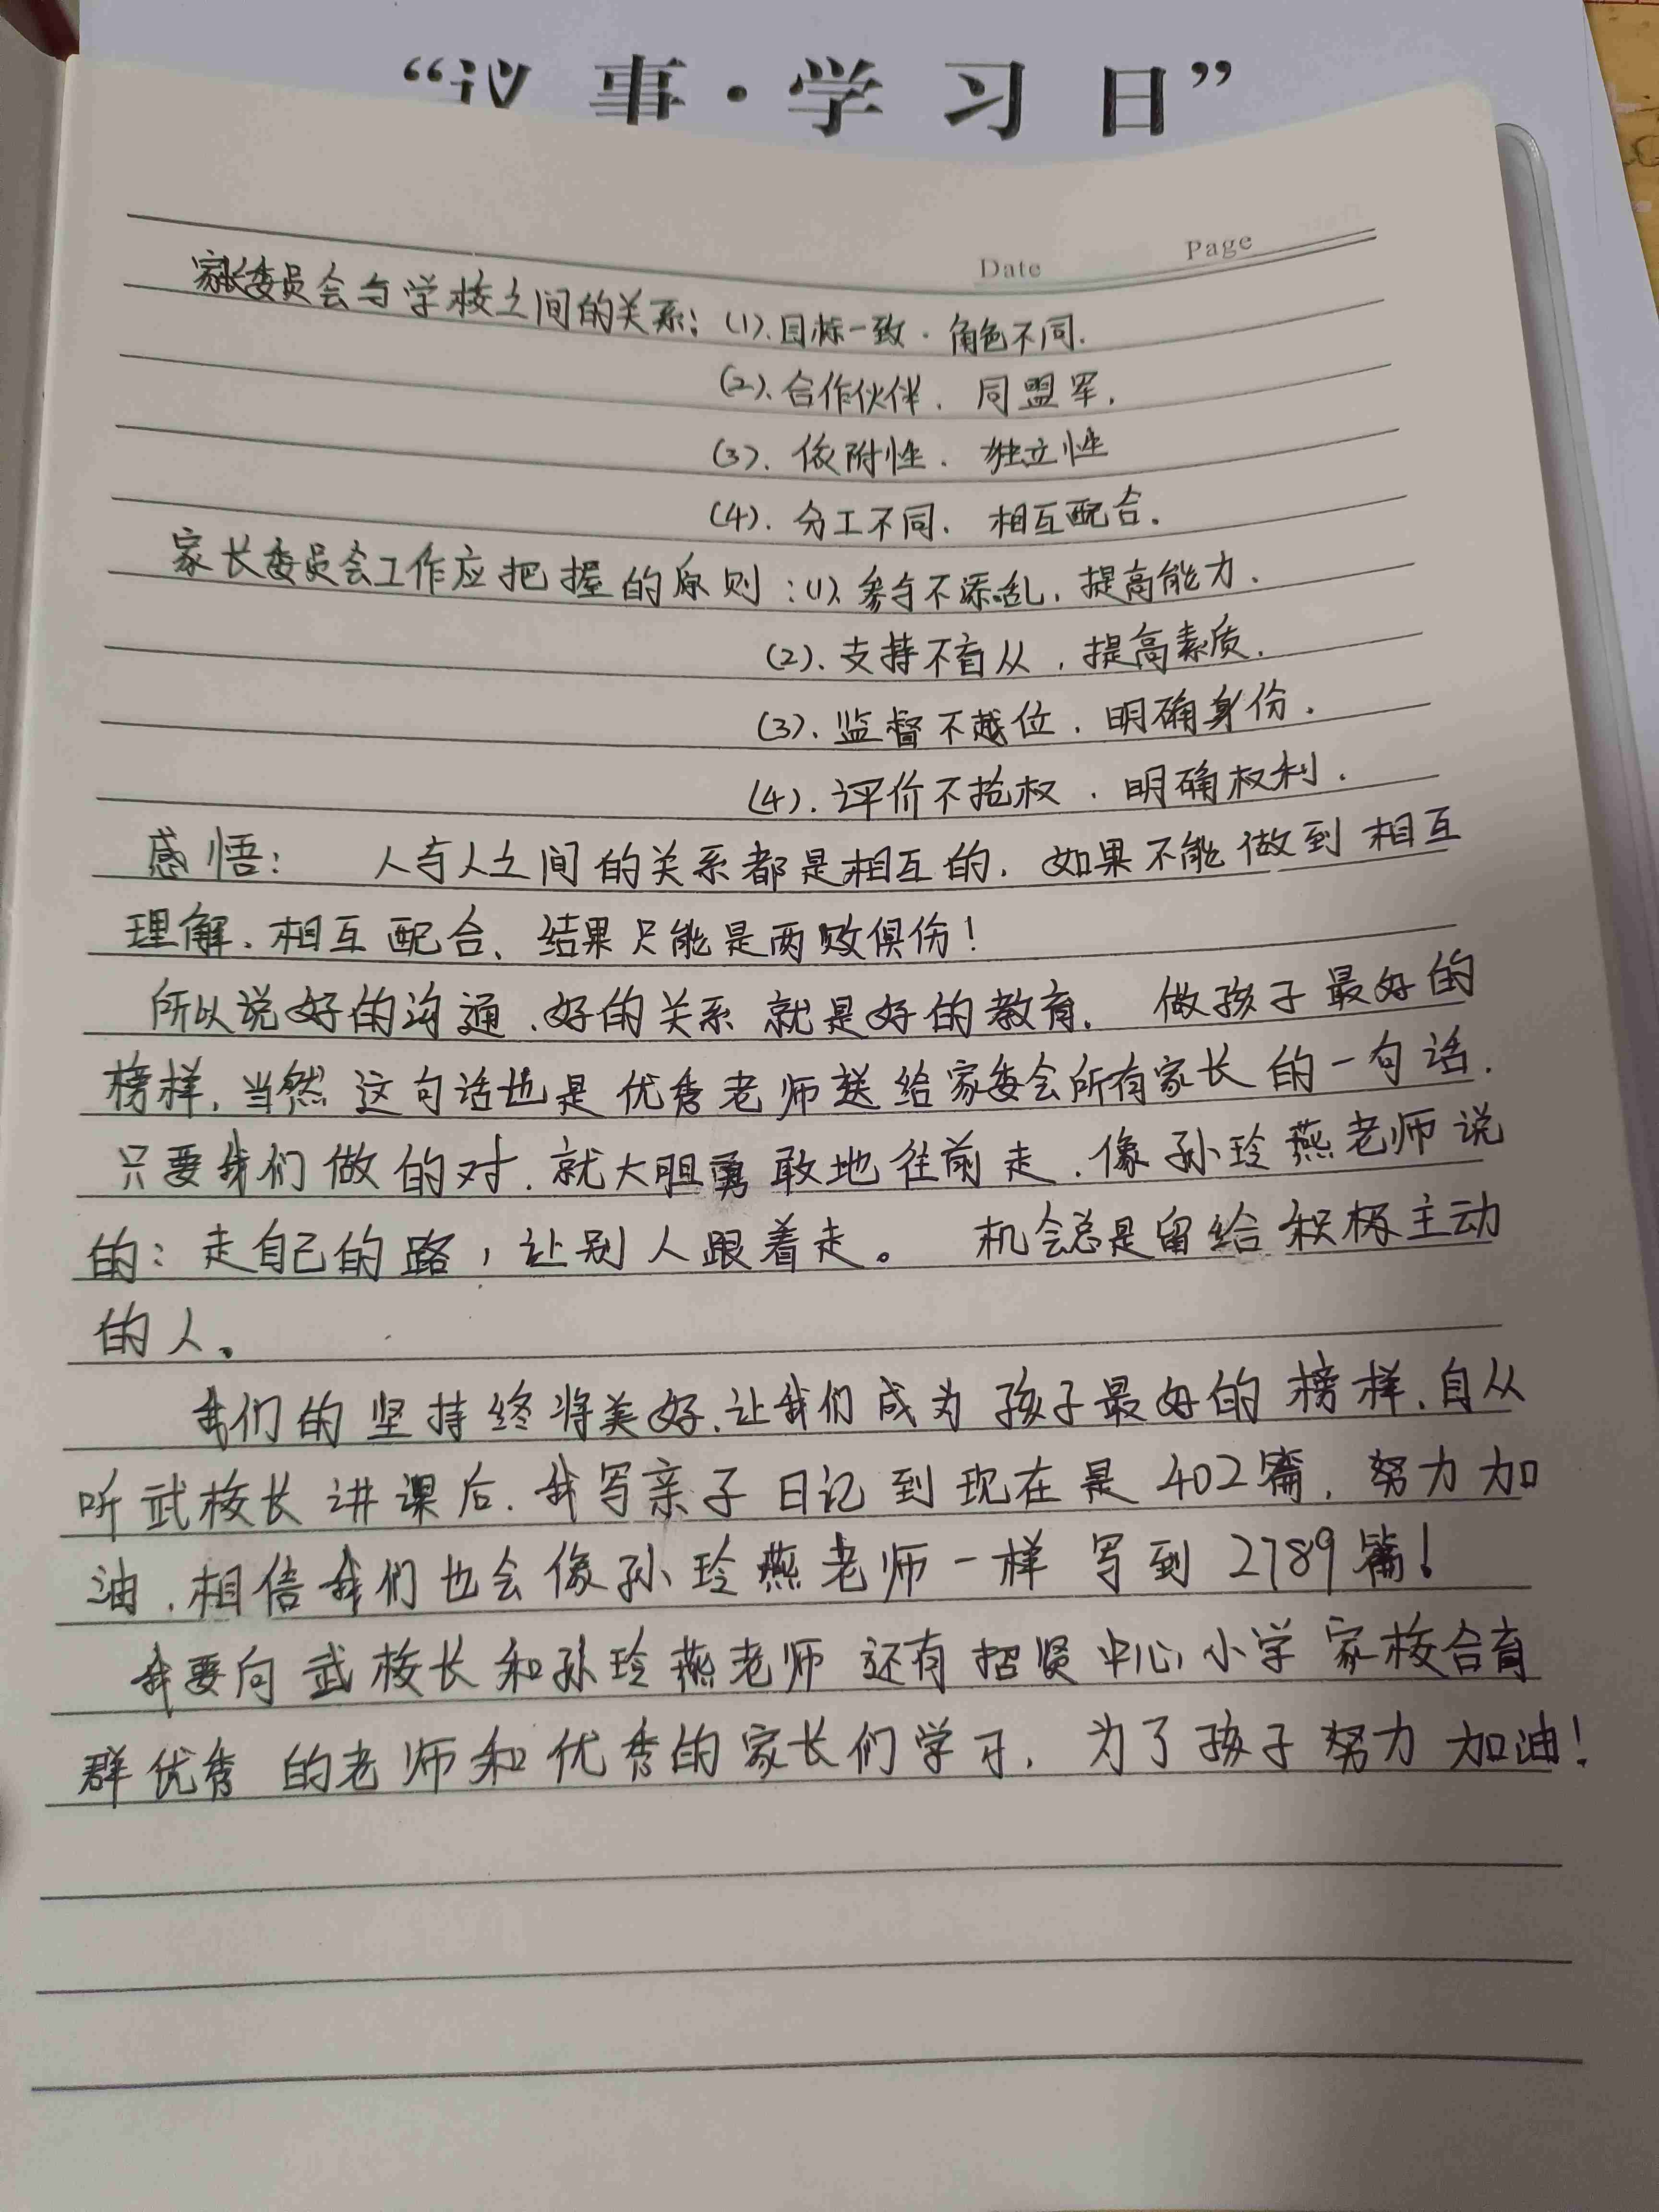 “议事·学习日”
Date Page
家长委员会与学校之间的关系：(1).目标一致．角色不同．
(2).合作伙伴．同盟军．
(3).依附性．独立性
(4).分工不同．相互配合．
家长委员会工作应把握的原则：(1).参与不添乱．提高能力．
(2).支持不盲从．提高素质．
(3).监督不越位．明确身份．
(4).评价不抢权．明确权利．
感悟： 人与人之间的关系都是相互的．如果不能做到相互
理解．相互配合．结果只能是两败俱伤！
所以说好的沟通．好的关系就是好的教育． 做孩子最好的
榜样．当然这句话也是优秀老师送给家委会所有家长的一句话．
只要我们做的对．就大胆勇敢地往前走．像孙玲燕老师说
的：走自己的路，让别人跟着走。 机会总是留给积极主动
的人。
我们的坚持终将美好．让我们成为孩子最好的榜样．自从
听武校长讲课后．我写亲子日记到现在是402篇．努力加
油．相信我们也会像孙玲燕老师一样写到2789篇！
我要向武校长和孙玲燕老师还有招贤中心小学家校合育
群优秀的老师和优秀的家长们学习．为了孩子努力加油！